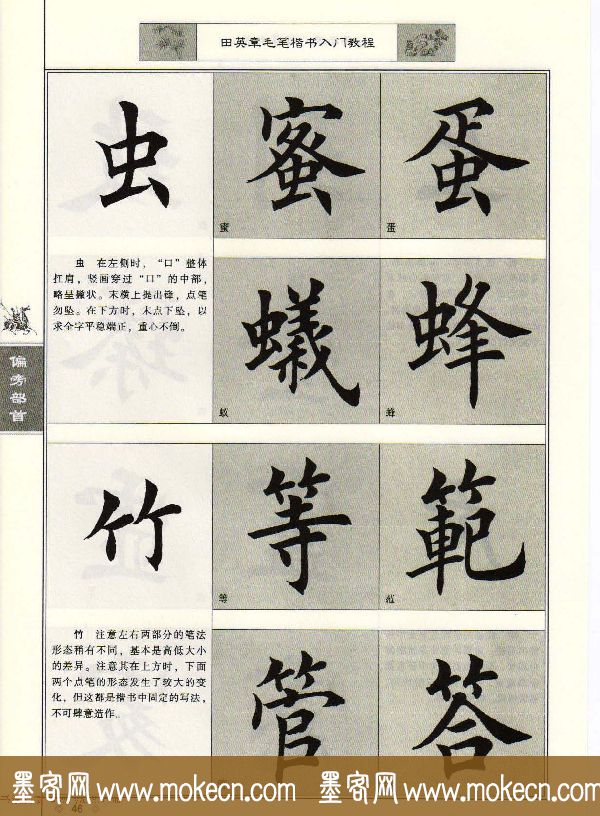 田英章毛笔楷书入门教程
虫
蜜
蛋
蜜
蛋
虫 在左侧时，“口”整体
扛肩，竖画穿过“口”的中部，
略呈撇状。末横上挑出锋，点笔
勿坠。在下方时，末点下坠，以
求全字平稳端正，重心不倒。
蟻
蜂
蚁
蜂
偏旁部首
竹
等
範
等
范
竹 注意左右两部分的笔法
形态稍有不同，基本是高低大小
的差异。注意其在上方时，下面
两个点笔的形态发生了较大的变
化，但这都是楷书中固定的写法，
不可肆意造作。
管
答
墨客网 www.mokecn.com 墨客网 www.mokecn.com
46